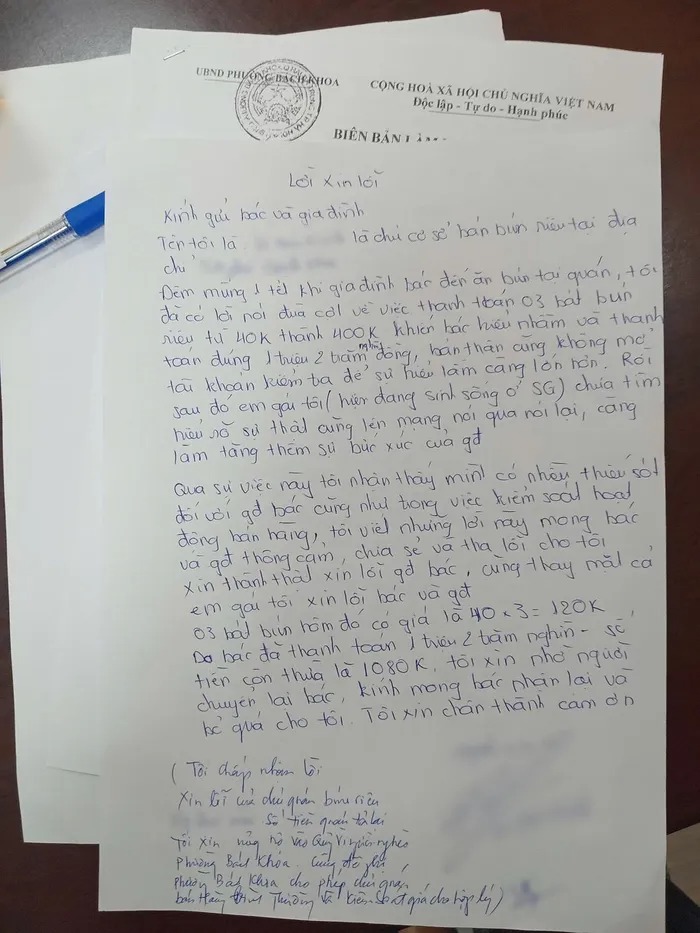 UBND PHƯỜNG BÁCH KHOA
CỘNG HOÀ XÃ HỘI CHỦ NGHĨA VIỆT NAM
Độc lập - Tự do - Hạnh phúc
BIÊN BẢN LÀM
Lời xin lỗi
Kính gửi bác và gia đình
Tên tôi là là chủ cơ sở bán bún riêu tại địa
chỉ
Đêm mùng 1 tết khi gia đình bác đến ăn bún tại quán, tôi
đã có lời nói đùa cợt về việc thanh toán 03 bát bún
riêu từ 40K thành 400K khiến bác hiểu nhầm và thanh
toán đúng 1 triệu 2 trăm nghìn đồng, bản thân cũng không mở
tài khoản kiểm tra để sự hiểu lầm càng lớn hơn. Rồi
sau đó em gái tôi (hiện đang sinh sống ở SG) chưa tìm
hiểu rõ sự thật cũng lên mạng nói qua nói lại, càng
làm tăng thêm sự bức xúc của gđ
Qua sự việc này tôi nhận thấy mình có nhiều thiếu sót
đối với gđ bác cũng như trong việc kiểm soát hoạt
động bán hàng, tôi viết những lời này mong bác
và gđ thông cảm, chia sẻ và tha lỗi cho tôi
xin thành thật xin lỗi gđ bác, cũng thay mặt cả
em gái tôi xin lỗi bác và gđ
03 bát bún hôm đó có giá là 40 x 3 = 120K
Do bác đã thanh toán 1 triệu 2 trăm nghìn - số
tiền còn thừa là 1080K. tôi xin nhờ người
chuyển lại bác, kính mong bác nhận lại và
bỏ quá cho tôi. Tôi xin chân thành cảm ơn
( Tôi chấp nhận lời
xin lỗi của chủ quán bún riêu
số tiền quán trả lại
Tôi xin ủng hộ vào Quỹ Vì người nghèo
phường Bách Khoa. Cũng đề nghị
phường Bách Khoa cho phép chủ quán
bán hàng bình thường và kiểm soát giá cho hợp lý )